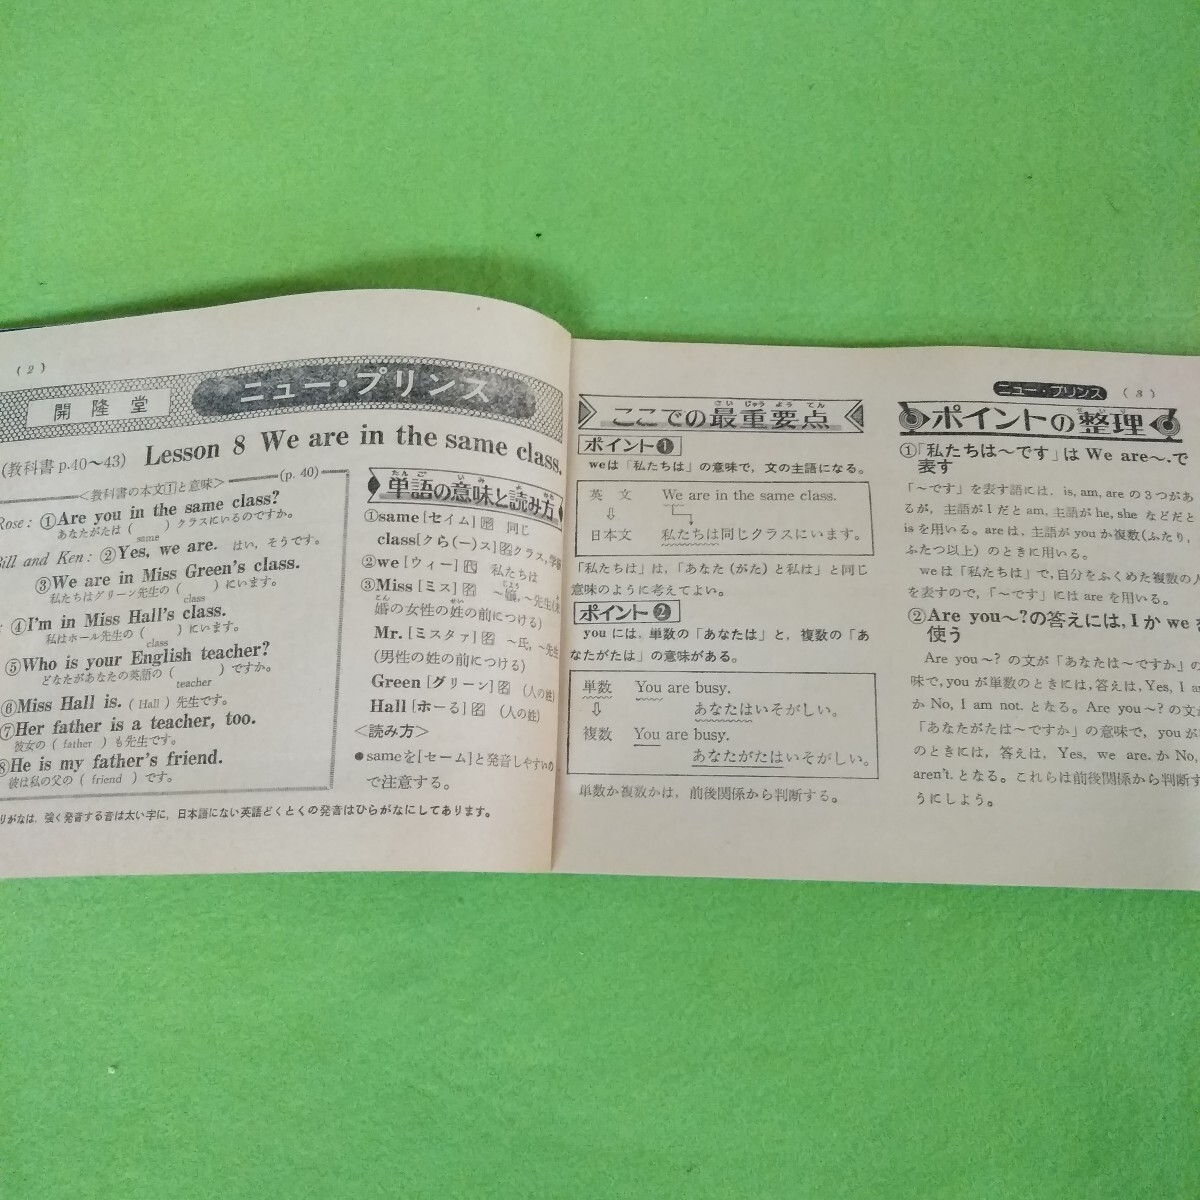 (2)
開隆堂
ニュー・プリンス
(教科書 p.40〜43) Lesson 8 We are in the same class.
<教科書の本文①と意味> (p. 40)
Rose: ①Are you in the same class?
あなたがたは ( same ) クラスにいるのですか。
Bill and Ken: ②Yes, we are. はい, そうです。
③We are in Miss Green's class.
私たちはグリーン先生の ( class ) にいます。
④I'm in Miss Hall's class.
私はホール先生の ( class ) にいます。
⑤Who is your English teacher?
どなたがあなたの英語の ( teacher ) ですか。
⑥Miss Hall is. ( Hall ) 先生です。
⑦Her father is a teacher, too.
彼女の ( father ) も先生です。
⑧He is my father's friend.
彼は私の父の ( friend ) です。
単語の意味と読み方
①same [セイム] 形 同じ
class [クら(ー)ス] 名 クラス, 学級
②we [ウィー] 代 私たちは
③Miss [ミス] 名 〜嬢, 〜先生
婚の女性の姓の前につける)
Mr. [ミスタァ] 名 〜氏, 〜先生
(男性の姓の前につける)
Green [グリーン] 名 (人の姓)
Hall [ホーる] 名 (人の姓)
<読み方>
●sameを[セーム]と発音しやすいの
で注意する。
りがなは, 強く発音する音は太い字に, 日本語にない英語どくとくの発音はひらがなにしてあります。
ここでの最重要点
ポイント❶
weは「私たちは」の意味で, 文の主語になる。
英 文 We are in the same class.
⇩
日本文 私たちは同じクラスにいます。
「私たちは」は, 「あなた (がた) と私は」と同じ
意味のように考えてよい。
ポイント❷
you には, 単数の「あなたは」と, 複数の「あ
なたがたは」の意味がある。
単数 You are busy.
⇩ あなたはいそがしい。
複数 You are busy.
あなたがたはいそがしい。
単数か複数かは, 前後関係から判断する。
ニュー・プリンス (3)
ポイントの整理
①「私たちは〜です」は We are〜.で
表す
「〜です」を表す語には, is, am, are の3つがあ
るが, 主語が I だと am, 主語が he, she などだと
is を用いる。are は, 主語が you か複数(ふたり,
ふたつ以上) のときに用いる。
we は「私たちは」で, 自分をふくめた複数の人
を表すので, 「〜です」には are を用いる。
②Are you〜?の答えには, I か we を
使う
Are you〜? の文が「あなたは〜ですか」の
味で, you が単数のときには, 答えは, Yes, I am
か No, I am not. となる。Are you〜? の文が
「あなたがたは〜ですか」の意味で, you が
のときには, 答えは, Yes, we are. か No,
aren't. となる。これらは前後関係から判断す
うにしよう。